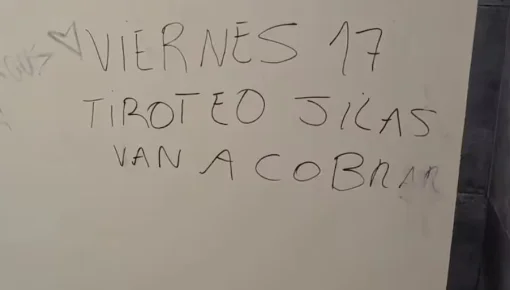 VIERNES 17
TIROTEO JILAS
VAN A COBRAR